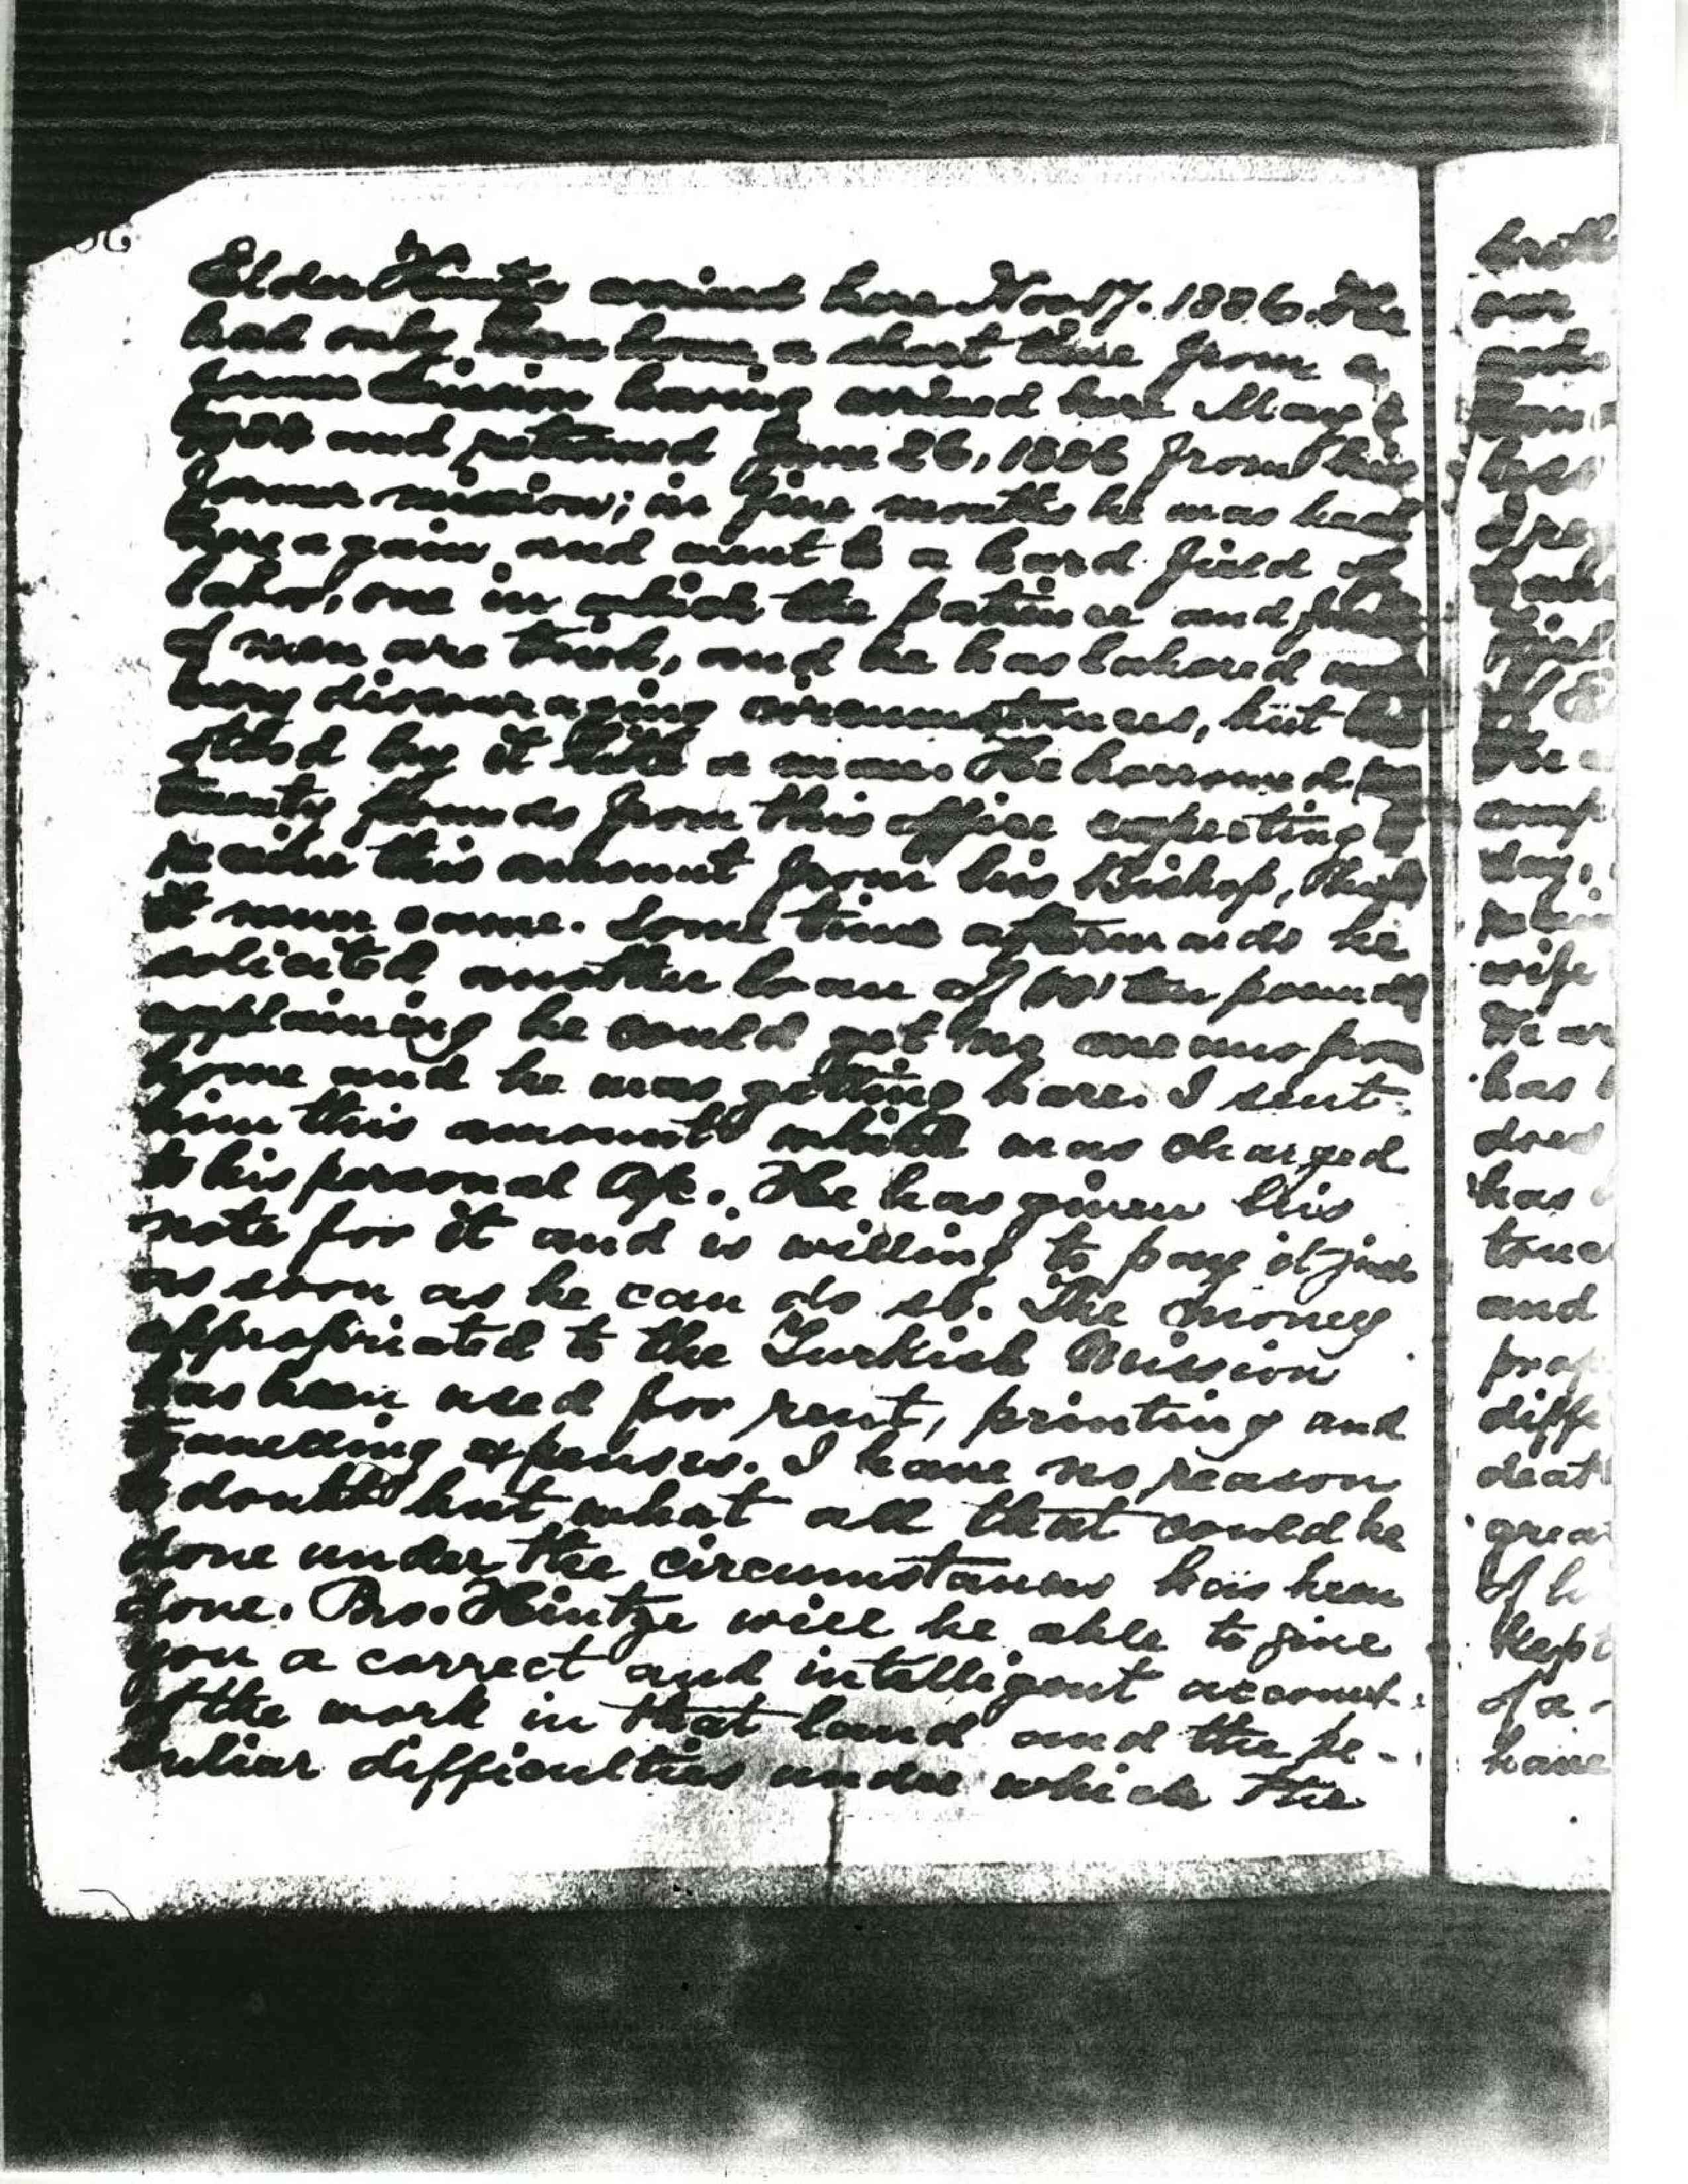 Elder Hintze arrived here Nov 17. 1886. He
had only been home a short time from a
former mission having arrived here May
and returned June 26, 1886 from his
former mission; in five months he was back
here again and went to a hard field of
labor, one in which the patience and faith
of men are tried, and he has labored under
very discouraging circumstances, but has
stood by it like a man. He borrowed
twenty pounds from this office expecting to
receive this amount from his Bishop, though
it never came. Some time afterwards he
solicited another loan of ten pounds
explaining he could get no means from
home and he was getting bare. I sent
him this amount which was charged
to his personal a/c. He has given his
note for it and is willing to pay it just
as soon as he can do so. The money
appropriated to the Turkish Mission
has been used for rent, printing and
traveling expenses. I have no reason
to doubt but what all that could be
done under the circumstances has been
done. Bro. Hintze will be able to give
you a correct and intelligent account
of the work in that land and the pe-
culiar difficulties under which the
our
day,
wife
has
does
has
and
diffe
deat
grea
of a
have